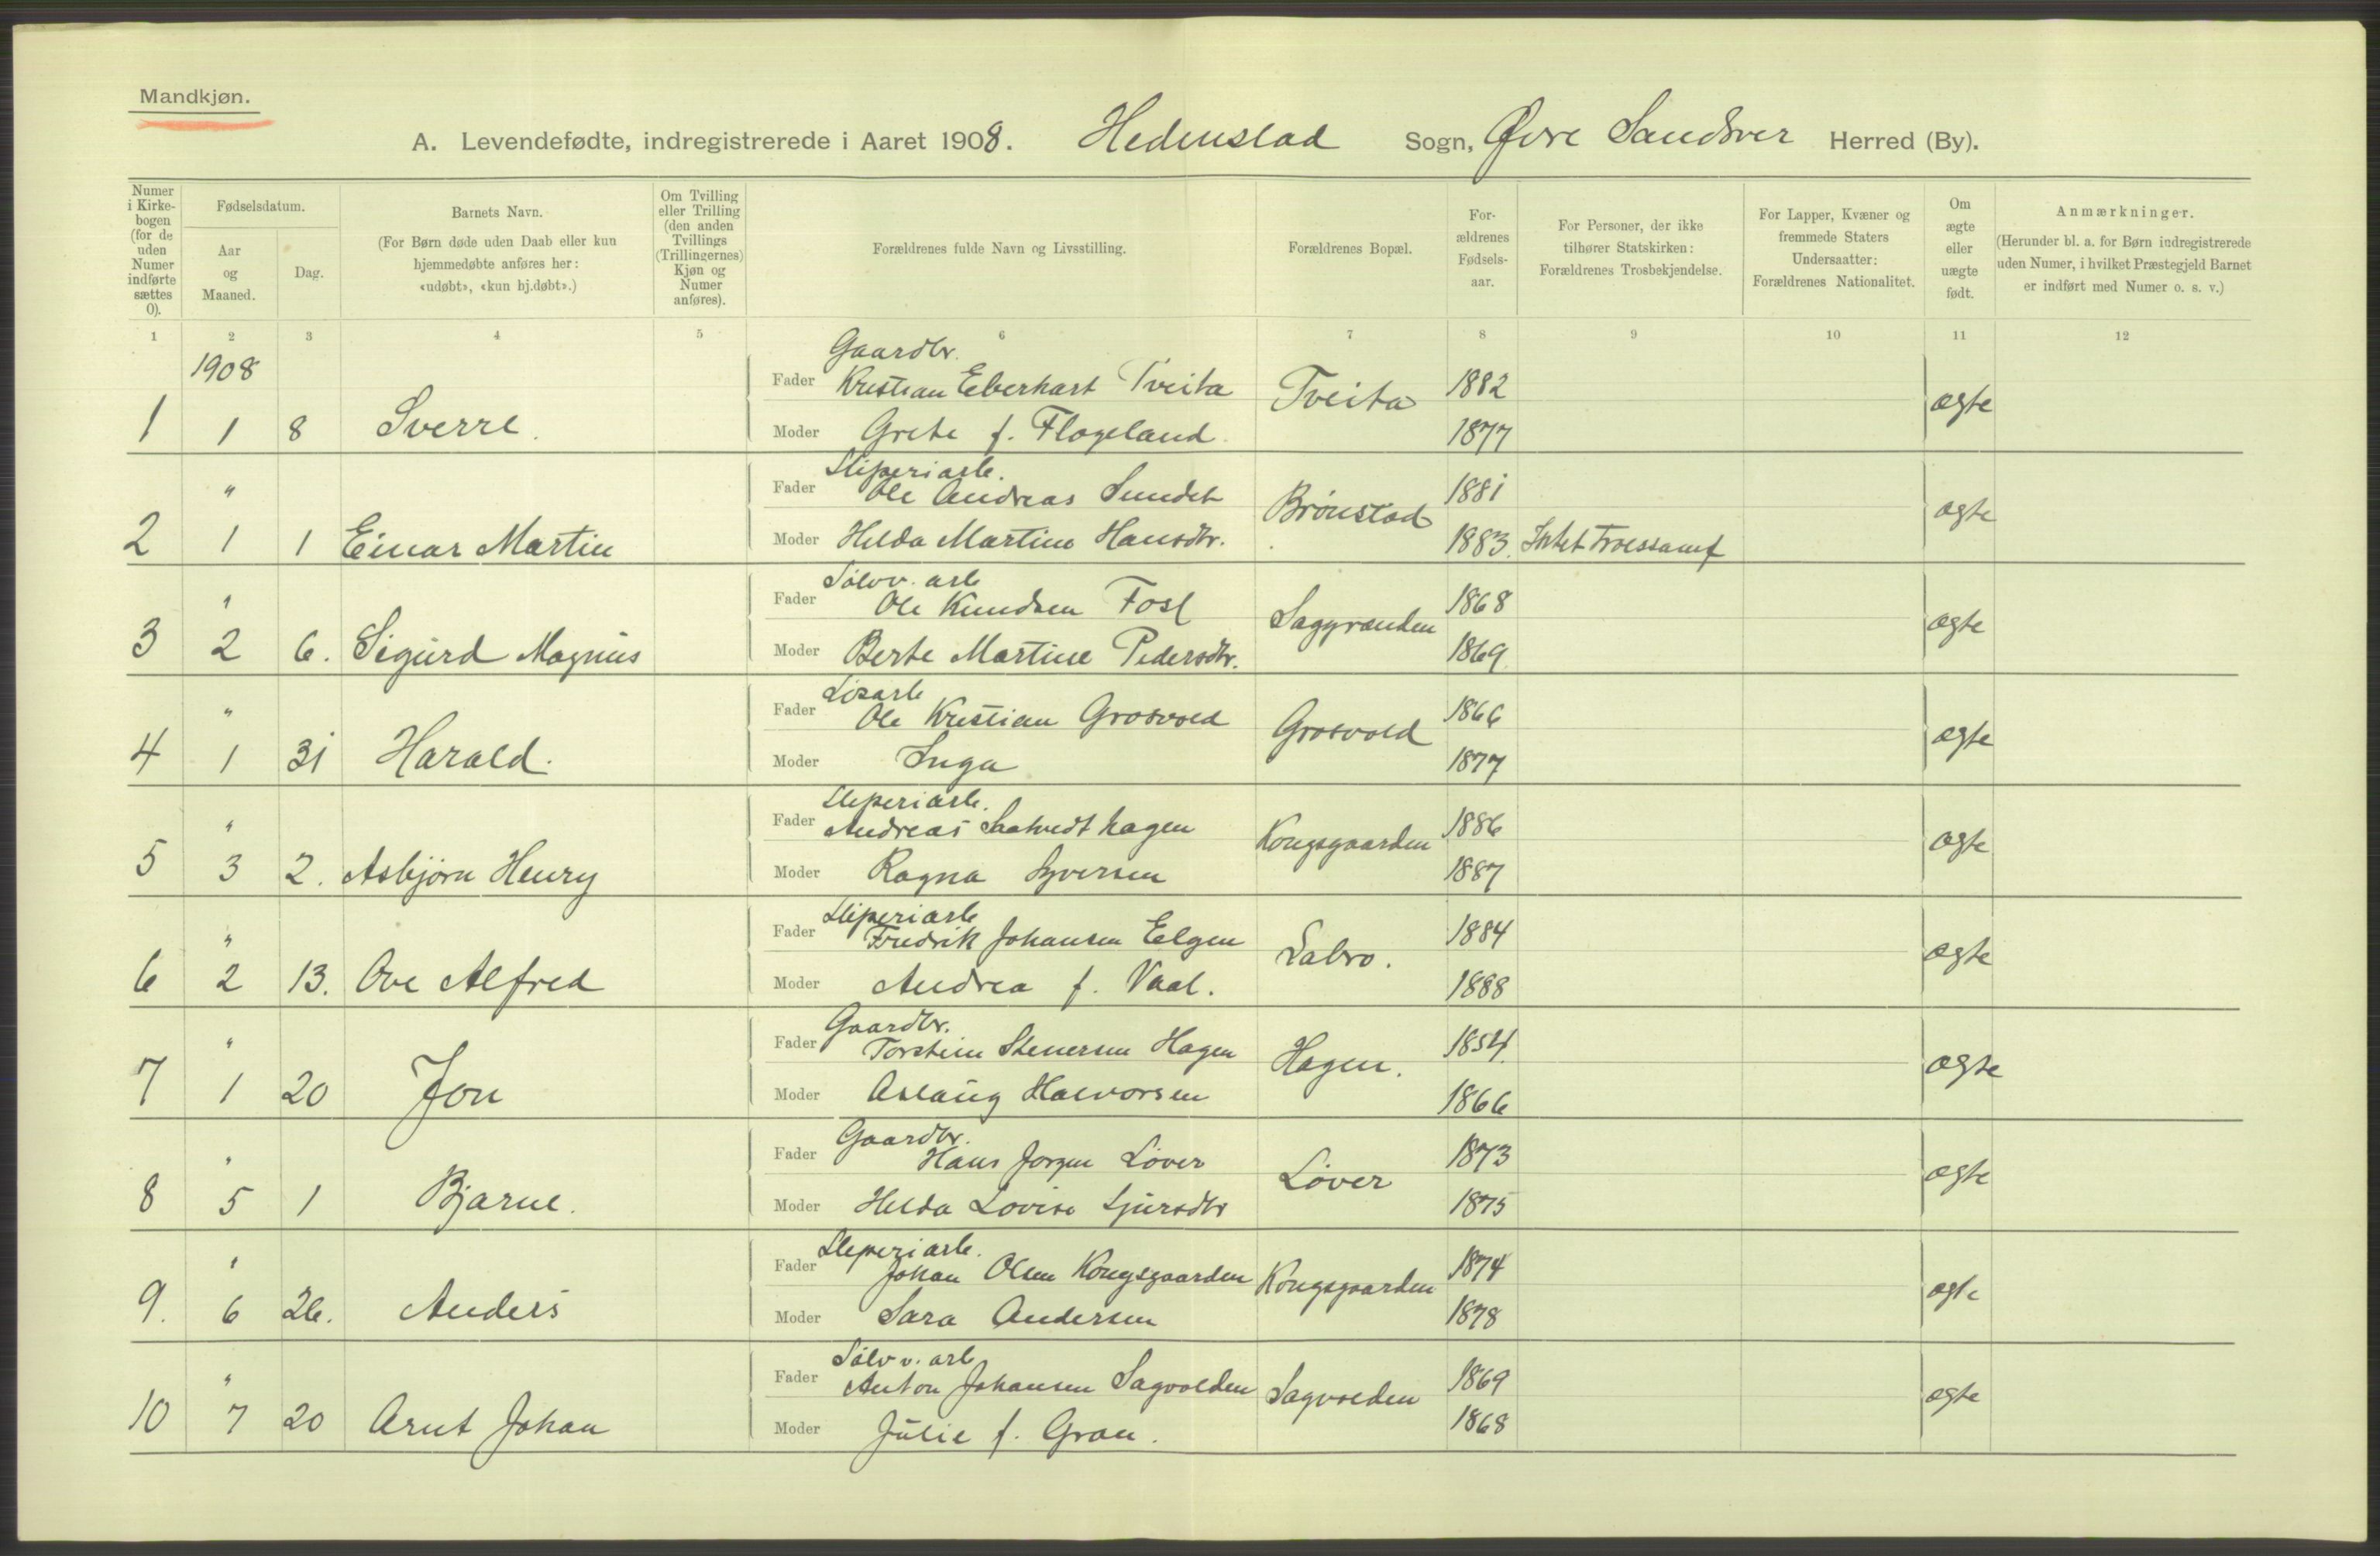 Mandkjøn.
A. Levendefødte, indregistrerede i Aaret 1908. Hedenstad Sogn, Øvre Sandsver Herred (By).
Numer i Kirke- bogen (for de uden Numer indførte sættes 0).
Fødselsdatum.
Aar og Maaned.
Dag.
Barnets Navn.
(For Børn døde uden Daab eller kun hjemmedøbte anføres her: «udøbt», «kun hj.døbt».)
Om Tvilling eller Trilling (den anden Tvillings (Trillingernes) Kjøn og Numer anføres).
Forældrenes fulde Navn og Livsstilling.
Forældrenes Bopæl.
For- ældrenes Fødsels- aar.
For Personer, der ikke tilhører Statskirken: Forældrenes Trosbekjendelse.
For Lapper, Kvæner og fremmede Staters Undersaatter: Forældrenes Nationalitet.
Om ægte eller uægte født.
Anmærkninger.
(Herunder bl. a. for Børn indregistrerede uden Numer, i hvilket Præstegjeld Barnet er indført med Numer o. s. v.)
1 2 3 4 5 6 7 8 9 10 11 12
1908
Gaardbr.
Fader Kristian Eberhart Tveita Tveita 1882 ægte
1 1 8 Sverre. Moder Grete f. Flogeland. 1877
Sliperiarb.
" Fader Ole Andreas Sundet Brønstad 1881 ægte
2 1 1 Einar Martin Moder Helda Martine Hansdtr. 1883. Intet Troessamf
Sølvv. arb
" Fader Ole Knudsen Fosl Saggrenden 1868 ægte
3 2 6. Sigurd Magnus Moder Berte Martine Pedersdtr. 1869
Løsarb
" Fader Ole Kristian Grosvold Grosvold 1866 ægte
4 1 31 Harald. Moder Inga 1877
Sliperiarb.
" Fader Andreas Saatvedthagen Kongsgaarden 1886 ægte
5 3 2. Asbjørn Henry Moder Ragna Syversen 1887
Sliperiarb
" Fader Fredrik Johansen Elgen Labro. 1884 ægte
6 2 13. Ove Alfred Moder Andrea f. Vaal. 1888
Gaardbr.
" Fader Torstein Stenersen Hagen Hagen. 1854. ægte
7 1 20 Jon Moder Aslaug Halvorsen 1866
Gaardbr.
" Fader Hans Jørgen Løver Løver 1873 ægte
8 5 1 Bjarne. Moder Helda Lovise Sjursdtr 1875
Sliperiarb.
" Fader Johan Olsen Kongsgaarden Kongsgaarden 1874 ægte
9. 6 26. Anders Moder Sara Andersen 1878
Sølvv. arb
" Fader Anton Johansen Sagvolden Sagvolden 1869 ægte
10 7 20 Arnt Johan Moder Julie f. Gran. 1868